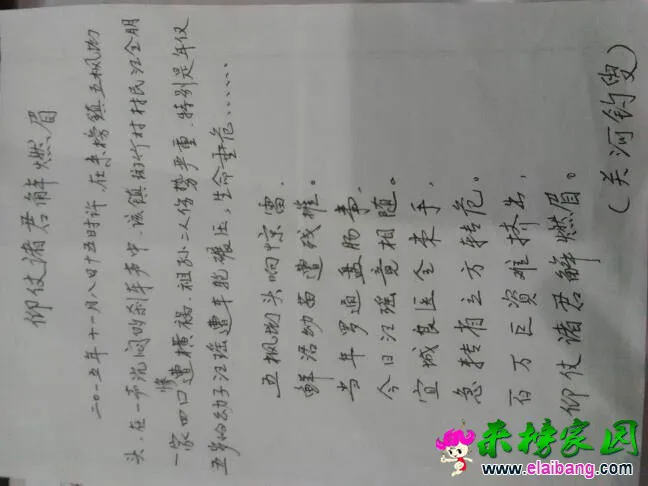 仰仗诸君解燃眉
二0一五年十一月八日十五时许,在来榜镇五枫坳
头,在一声沉闷的刹车声中,该镇斑竹村村民汪全朋
一家四口惨遭横祸,祖孙二人伤势严重,特别是年仅
五岁的幼子汪瑶遭车轮碾压,生命垂危……
五枫坳头响惊雷,
鲜活幼苗遭残摧。
当年罗通盘肠事,
今日汪瑶竟相随。
宜城良医全束手,
急转省立方转危。
百万巨资难挤出,
仰仗诸君解燃眉。
(关河钓叟)
来榜家园
www.elaibang.com